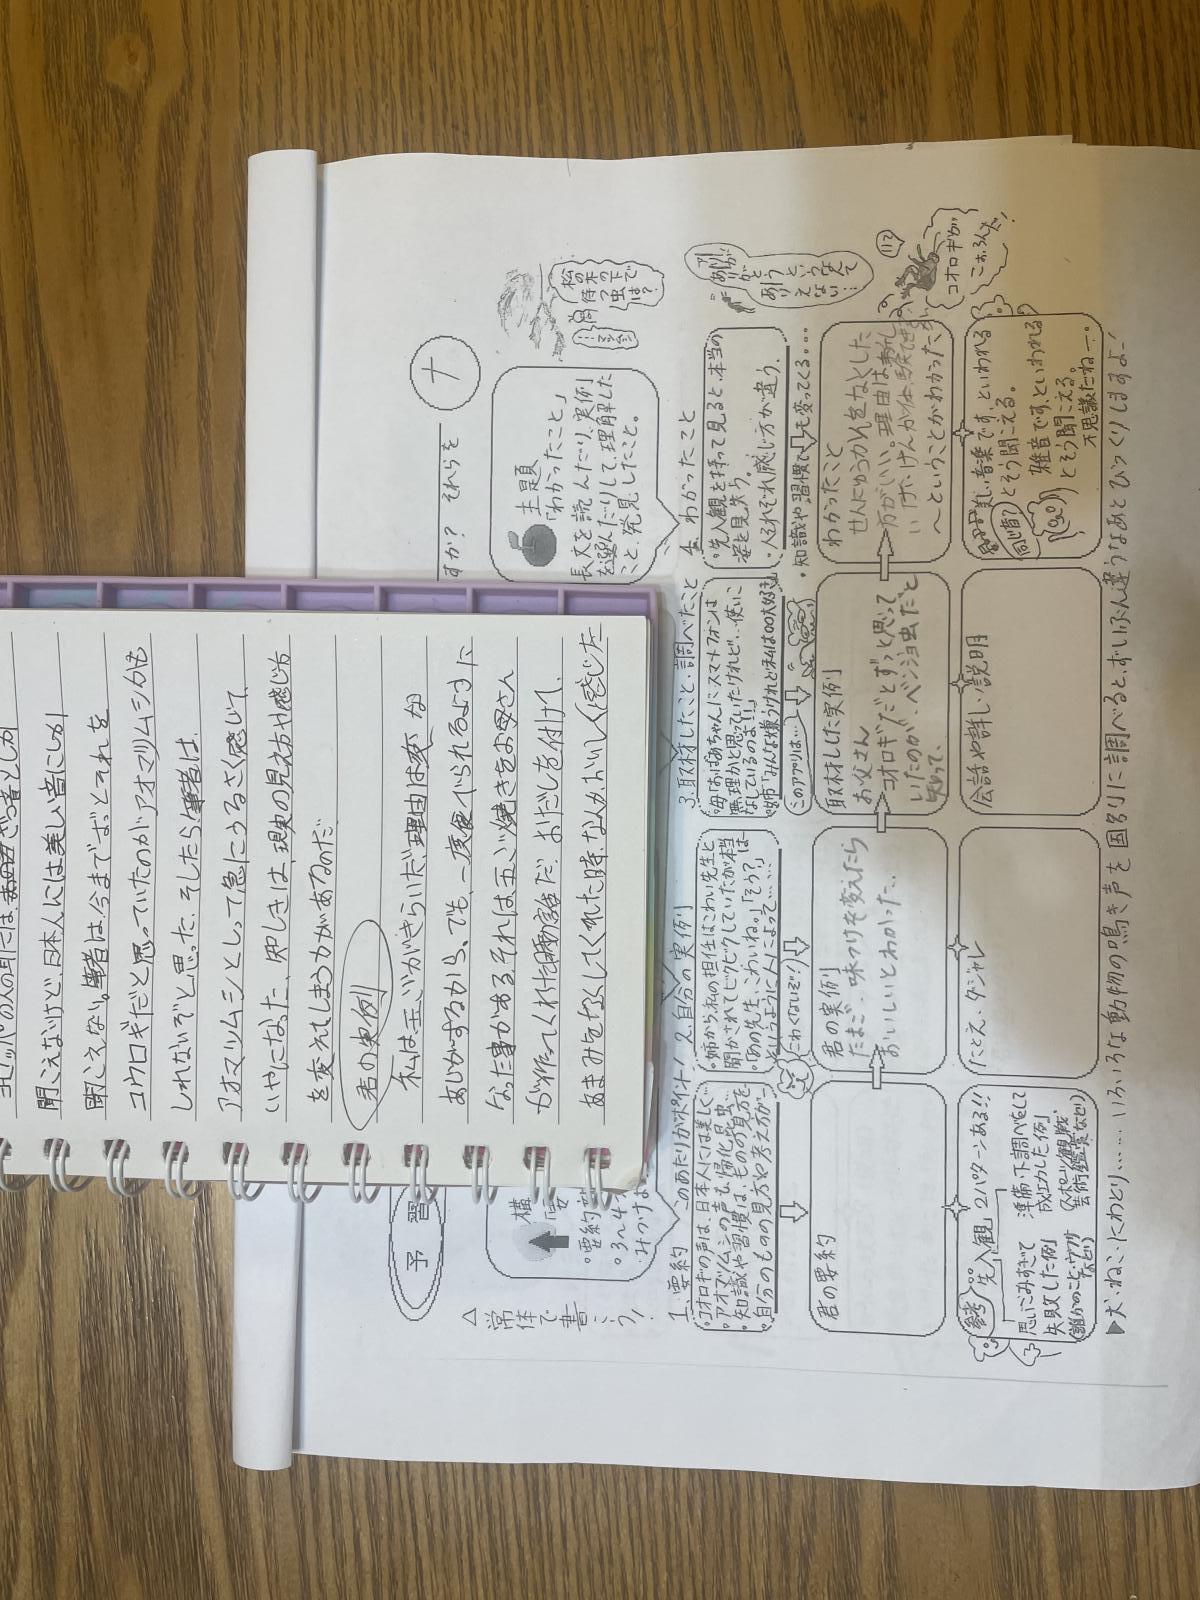 聞こえないけど、日本人には美しい音にしか
聞こえない。筆者は、今までずっとそれを
コウロギだと思っていたのが、アオマツムシかも
しれないぞと思った。そしたら筆者は、
アオマツムシとしって急にうるさく感じて、
いやになった。
を変えてしまう力があるのだ
君の実例
私は玉ごがきらいだ。理由は変な
あじがするから、でも、一度食べられるように
なった事がある。それは玉ご焼きをお母さん
が作ってくれた
おだしを付けて、
あまみをなくしてくれた時、なんかおいしく感じた
予習
△常体で書こう!
すか? それらを
十
主題
「わかったこと」
長文を読んだり、実例
を選んだりして、理解した
こと、発見したこと。
松の木の下
で待つ虫
では?
1.要約 このあたりがポイント!
・コオロギの声は、日本人には美しく…
・アオマツムシの声も、帰化昆虫…
・知識や習慣は、ものの見方を…
自分のものの見方や考え方が…
2.自分の実例
・姉から私の担任はこわい先生と
聞かされてビクビクしていたが本当は…
・「あの先生、こわいね。」「そう?」
というように人によって……
こわくないぞ!
3.取材したこと・調べたこと
・母「おばあちゃんにスマートフォンは
無理かと思っていたけれど…使いこ
なしているのよ!!」
・姉「みんな嫌うけれど私は○○大好き」
このアプリは…
4.わかったこと
・先入観を持って見ると、本当の
姿を見失う。
・人それぞれ感じ方が違う。
・知識や習慣で…も変ってくる。。。
アリが
ありがとう
という
なんて
ありえない…
コオロギが
こおろんだ!
君の要約
君の実例
たまご・味つけを変えたら
おいしいとわかった。
取材した実例
お父さん
コオロギだとずっと思って
いたのが、ベンジョ虫だと
知って、
わかったこと
せんにゅうかんをなくした
方がいい。理由は
〜ということがわかった
参考 先入観 2パターンある!!
思いこみすぎて
失敗した例
準備・下調べをして
成功した例
(スポーツ観戦、
芸術鑑賞など)
たとえ・ダジャレ
会話や詳しい説明
同じ音?
美しい音楽です、といわれる
とそう聞こえる。
雑音です、といわれる
とそう聞こえる。
不思議だねー。
▶犬、ねこ、にわとり…… いろいろな動物の鳴き声を国別に調べると、ずいぶん違うなあとびっくりしますよ!